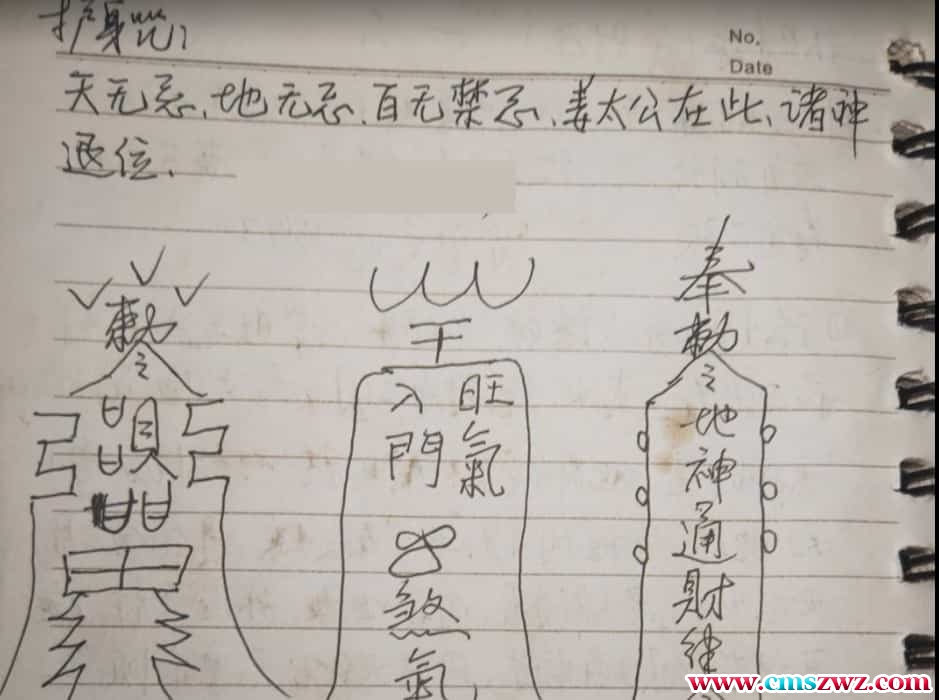 护身咒:
No.
Date
天无忌、地无忌、百无禁忌、姜太公在此、诸神
退位.
奉
勅
勅
令
令
入 旺
門 氣
煞
氣
地
神
通
財
www.cmszwz.com